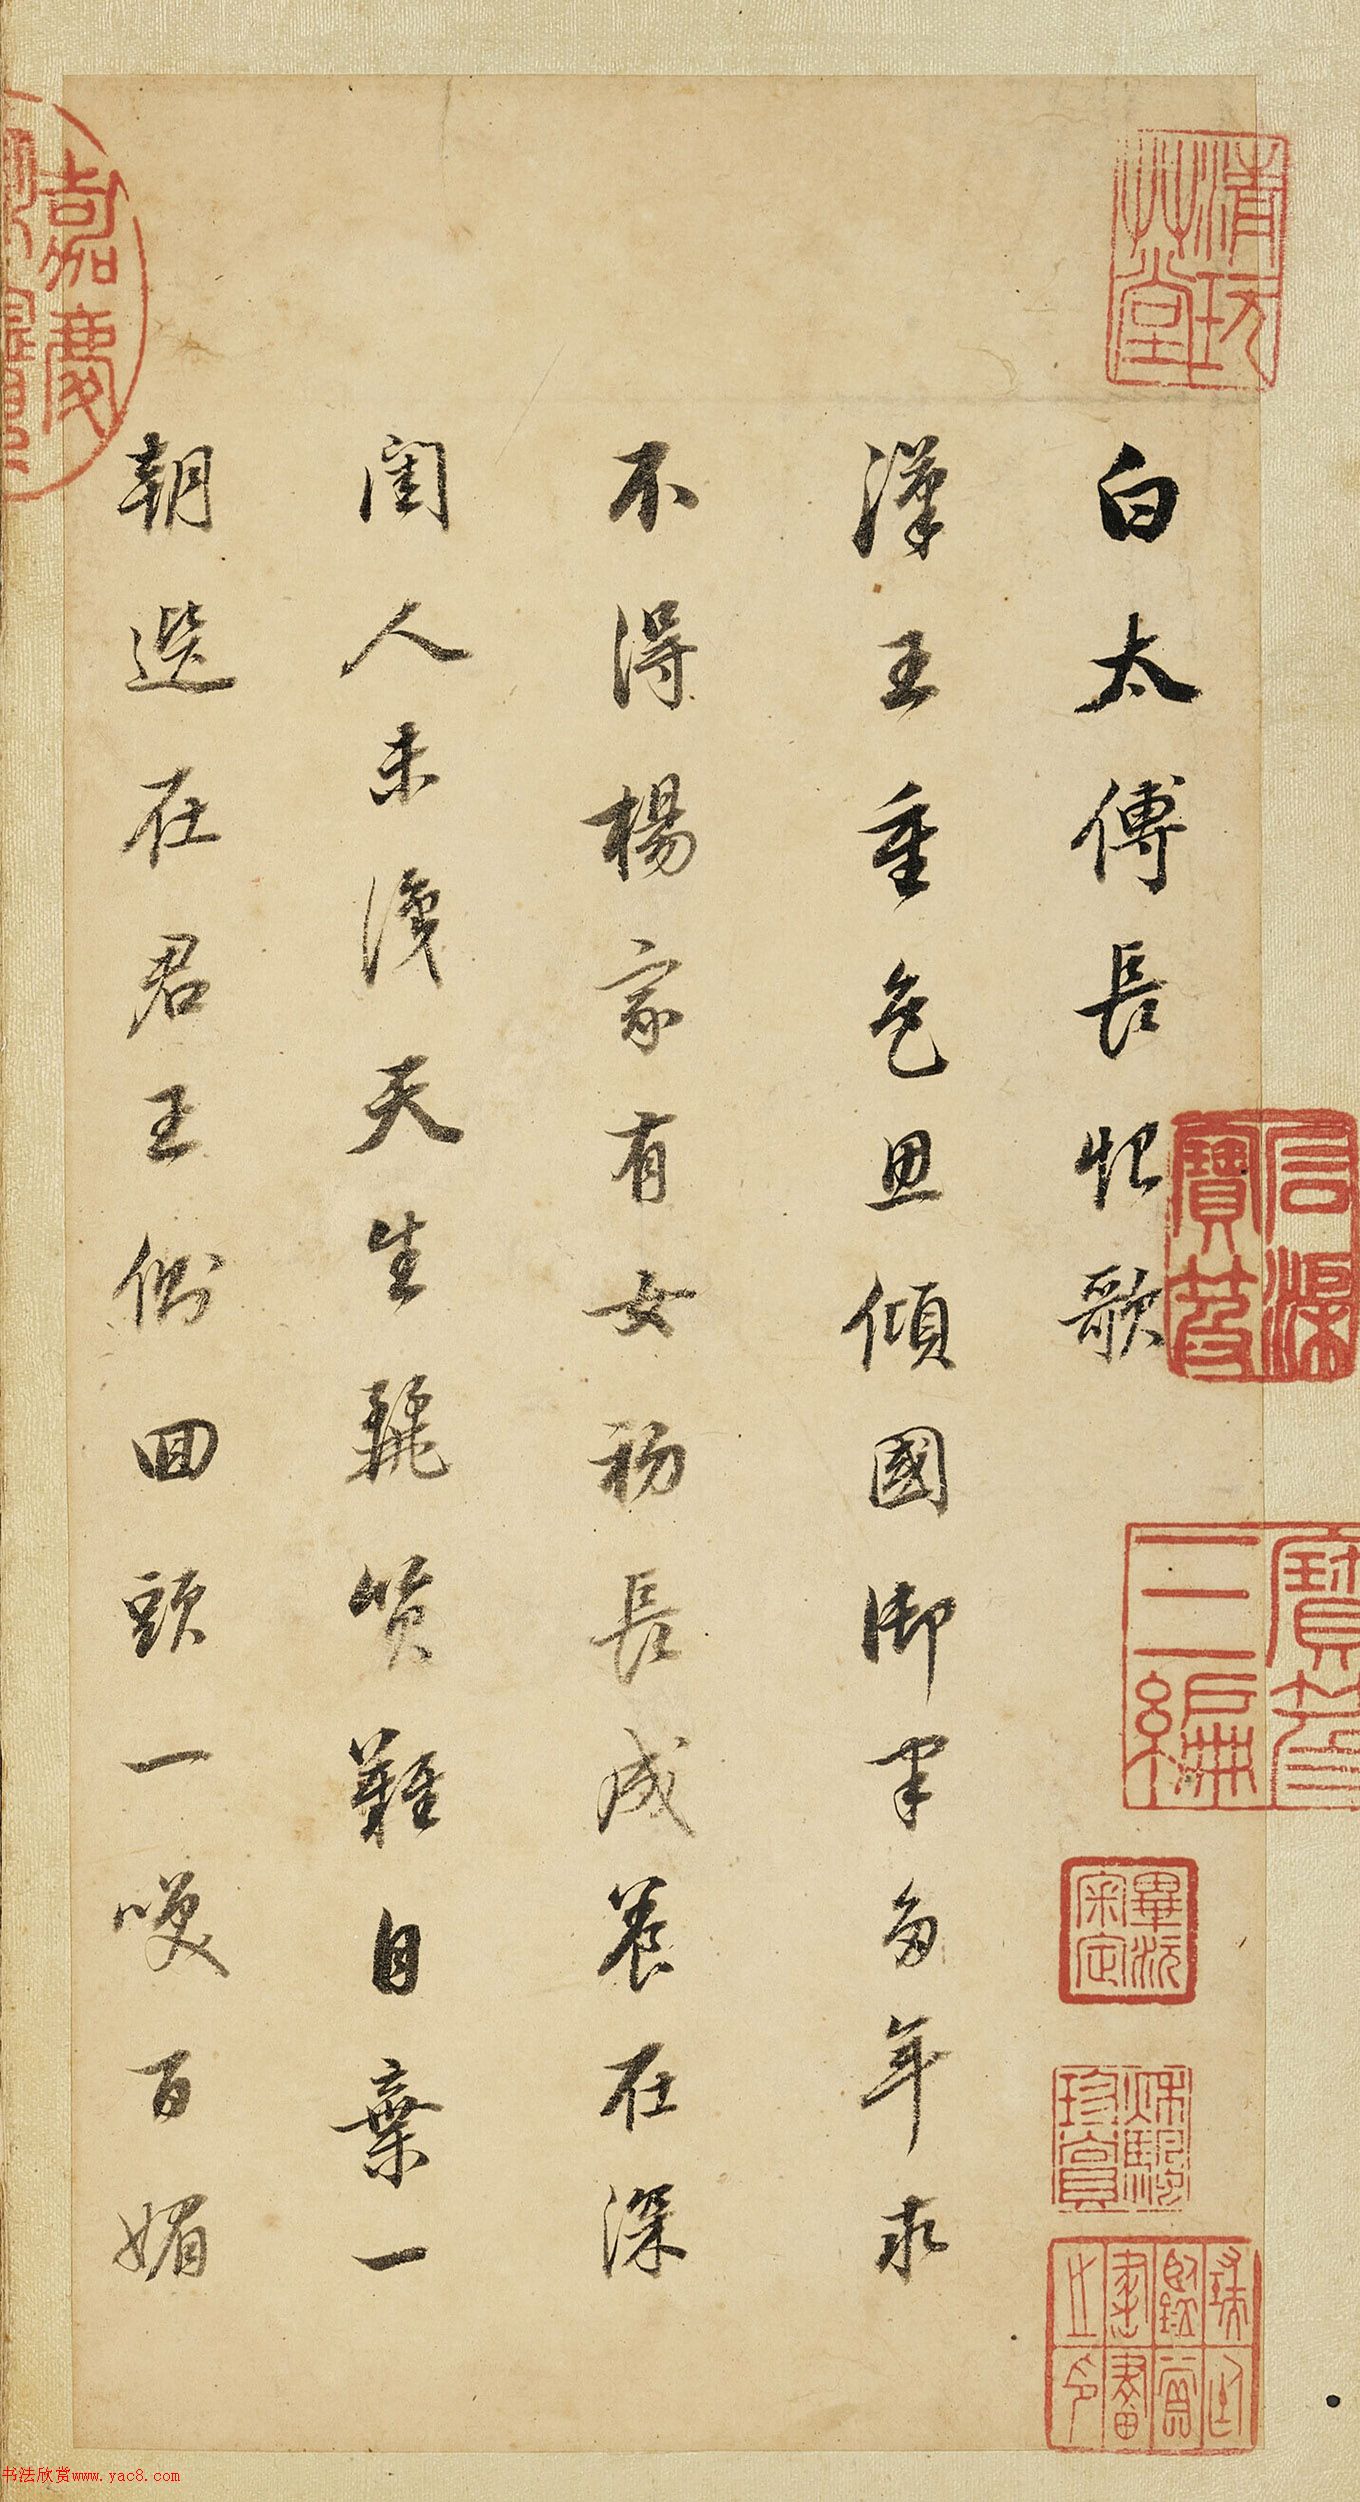 白太傅長恨歌
漢王重色思傾國御宇多年求
不得楊家有女初長成養在深
閨人未識天生麗質難自棄一
朝選在君王側回頭一笑百媚
清玩堂
石渠寶笈
寶笈三編
畢沅審定
秋颿珍賞
嘉慶
书法欣赏www.yac8.com